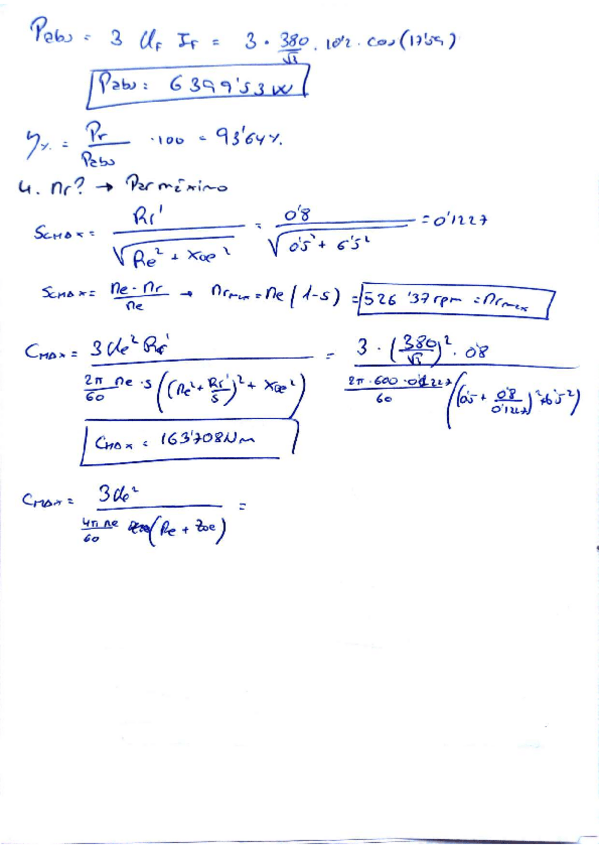 Pabs = 3 Uf If = 3 · 380/√3 · 10'2 · cos(17'59)
Pabs = 6399'53 W
η% = Pr/Pabs · 100 = 93'64%.
4. nr? → Par máximo
SCMAX = Rr'/√(Re² + Xoe²) = 0'8/√(0'5² + 6'5²) = 0'1227
SCMAX = (ne - nr)/ne → nrmax = ne (1-s) = 526'37 rpm = nrmax
CMAX = 3Ue² Rr'/(2π/60 ne · s ((Re² + Rr'/s)² + Xoe²)) = 3 · (380/√3)² · 0'8/(2π · 600 · 0'1227/60 ((0'5 + 0'8/0'1227)² + 6'5²))
CMAX = 163'708 Nm
CMAX = 3Ue²/(4π ne/60 (Re + Zoe)) =